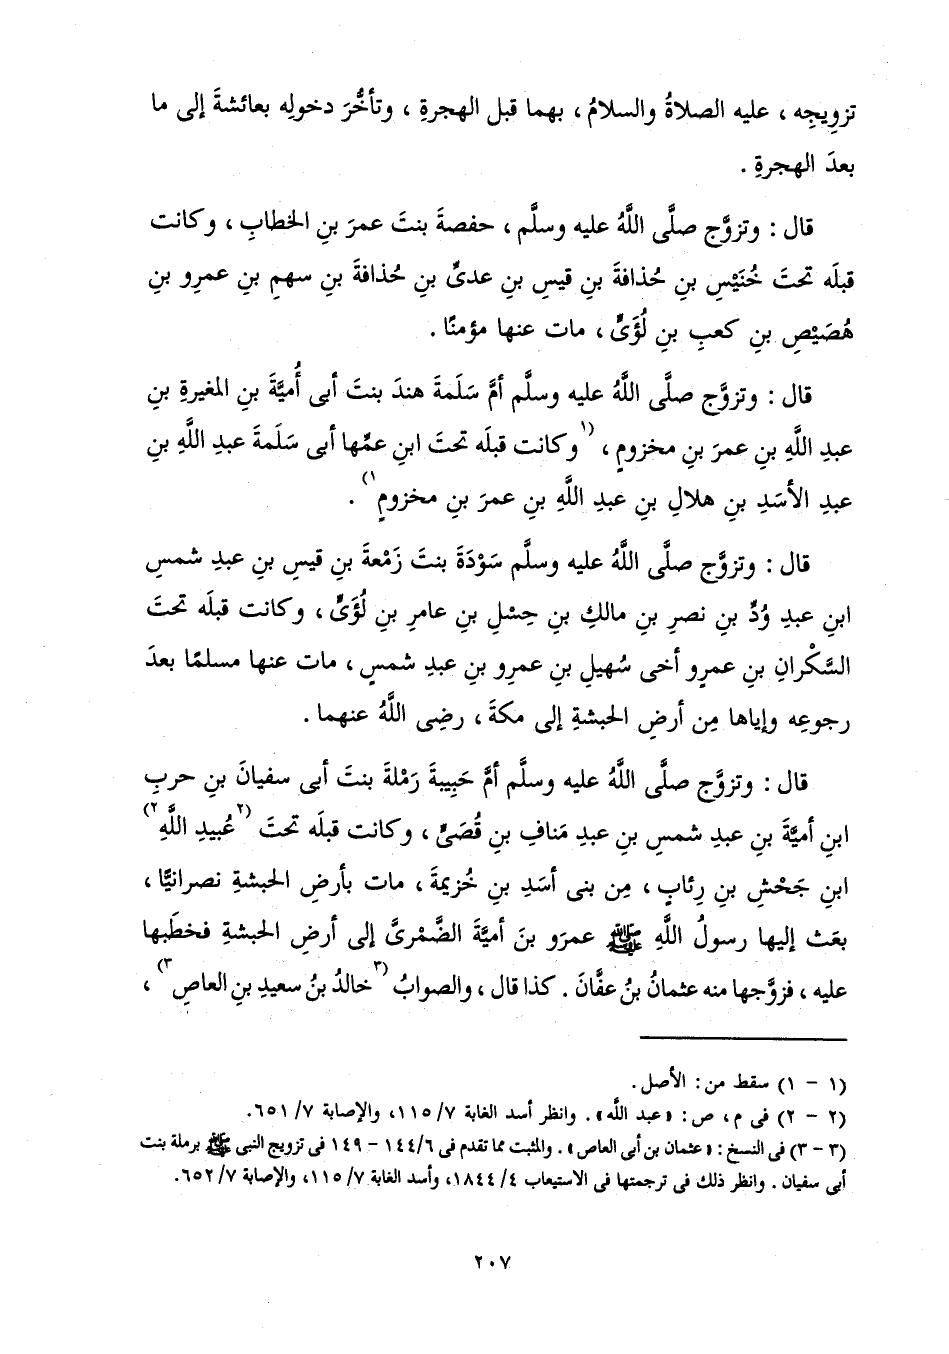 تزويجِه ، عليه الصلاةُ والسلامُ ، بهما قبل الهجرةِ ، وتأخُّرَ دخولِه بعائشةَ إلى ما
بعدَ الهجرةِ .
قال : وتزوَّج صلَّى اللَّهُ عليه وسلَّم ، حفصةَ بنتَ عمرَ بنِ الخطابِ ، وكانت
قبلَه تحتَ خُنَيْسِ بنِ حُذافةَ بنِ قيسِ بنِ عدىِّ بنِ حُذافةَ بنِ سهمِ بنِ عمرِو بنِ
هُصَيْصِ بنِ كعبِ بنِ لُؤَىٍّ ، مات عنها مؤمنًا .
قال : وتزوَّج صلَّى اللَّهُ عليه وسلَّم أمَّ سَلَمةَ هندَ بنتَ أبى أُميَّةَ بنِ المغيرةِ بنِ
عبدِ اللَّهِ بنِ عمرَ بنِ مخزومٍ ، (١وكانت قبلَه تحتَ ابنِ عمِّها أبى سَلَمةَ عبدِ اللَّهِ بنِ
عبدِ الأسَدِ بنِ هلالِ بنِ عبدِ اللَّهِ بنِ عمرَ بنِ مخزومٍ١) .
قال : وتزوَّج صلَّى اللَّهُ عليه وسلَّم سَوْدَةَ بنتَ زَمْعةَ بنِ قيسِ بنِ عبدِ شمسِ
ابنِ عبدِ وُدٍّ بنِ نصرِ بنِ مالكِ بنِ حِسْلِ بنِ عامرِ بنِ لُؤَىٍّ ، وكانت قبلَه تحتَ
السَّكْرانِ بنِ عمرٍو أخى سُهيلِ بنِ عمرِو بنِ عبدِ شمسٍ ، مات عنها مسلمًا بعدَ
رجوعِه وإياها مِن أرضِ الحبشةِ إلى مكةَ ، رضِى اللَّهُ عنهما .
قال : وتزوَّج صلَّى اللَّهُ عليه وسلَّم أمَّ حَبِيبةَ رَمْلةَ بنتَ أبى سفيانَ بنِ حربِ
ابنِ أميَّةَ بنِ عبدِ شمسِ بنِ عبدِ مَنافِ بنِ قُصَىٍّ ، وكانت قبلَه تحتَ (٢عُبيدِ اللَّهِ٢)
ابنِ جَحْشِ بنِ رِئابٍ ، مِن بنى أسَدِ بنِ خُزيمةَ ، مات بأرضِ الحبشةِ نصرانيًّا ،
بعَث إليها رسولُ اللَّهِ ﷺ عمرَو بنَ أميَّةَ الضَّمْرىَّ إلى أرضِ الحبشةِ فخطَبها
عليه ، فزوَّجها منه عثمانُ بنُ عفَّانَ . كذا قال ، والصوابُ (٣خالدُ بنُ سعيدِ بنِ العاصِ٣) ،
(١ - ١) سقط من : الأصل .
(٢ - ٢) فى م ، ص : « عبد اللَّه » . وانظر أسد الغابة ٧/ ١١٥، والإصابة ٧/ ٦٥١.
(٣ - ٣) فى النسخ : « عثمان بن أبى العاص » . والمثبت مما تقدم فى ٦/ ١٤٤ - ١٤٩ فى تزويج النبى ﷺ برملة بنت
أبى سفيان . وانظر ذلك فى ترجمتها فى الاستيعاب ٤/ ١٨٤٤، وأسد الغابة ٧/ ١١٥، والإصابة ٧/ ٦٥٢.
٢٠٧